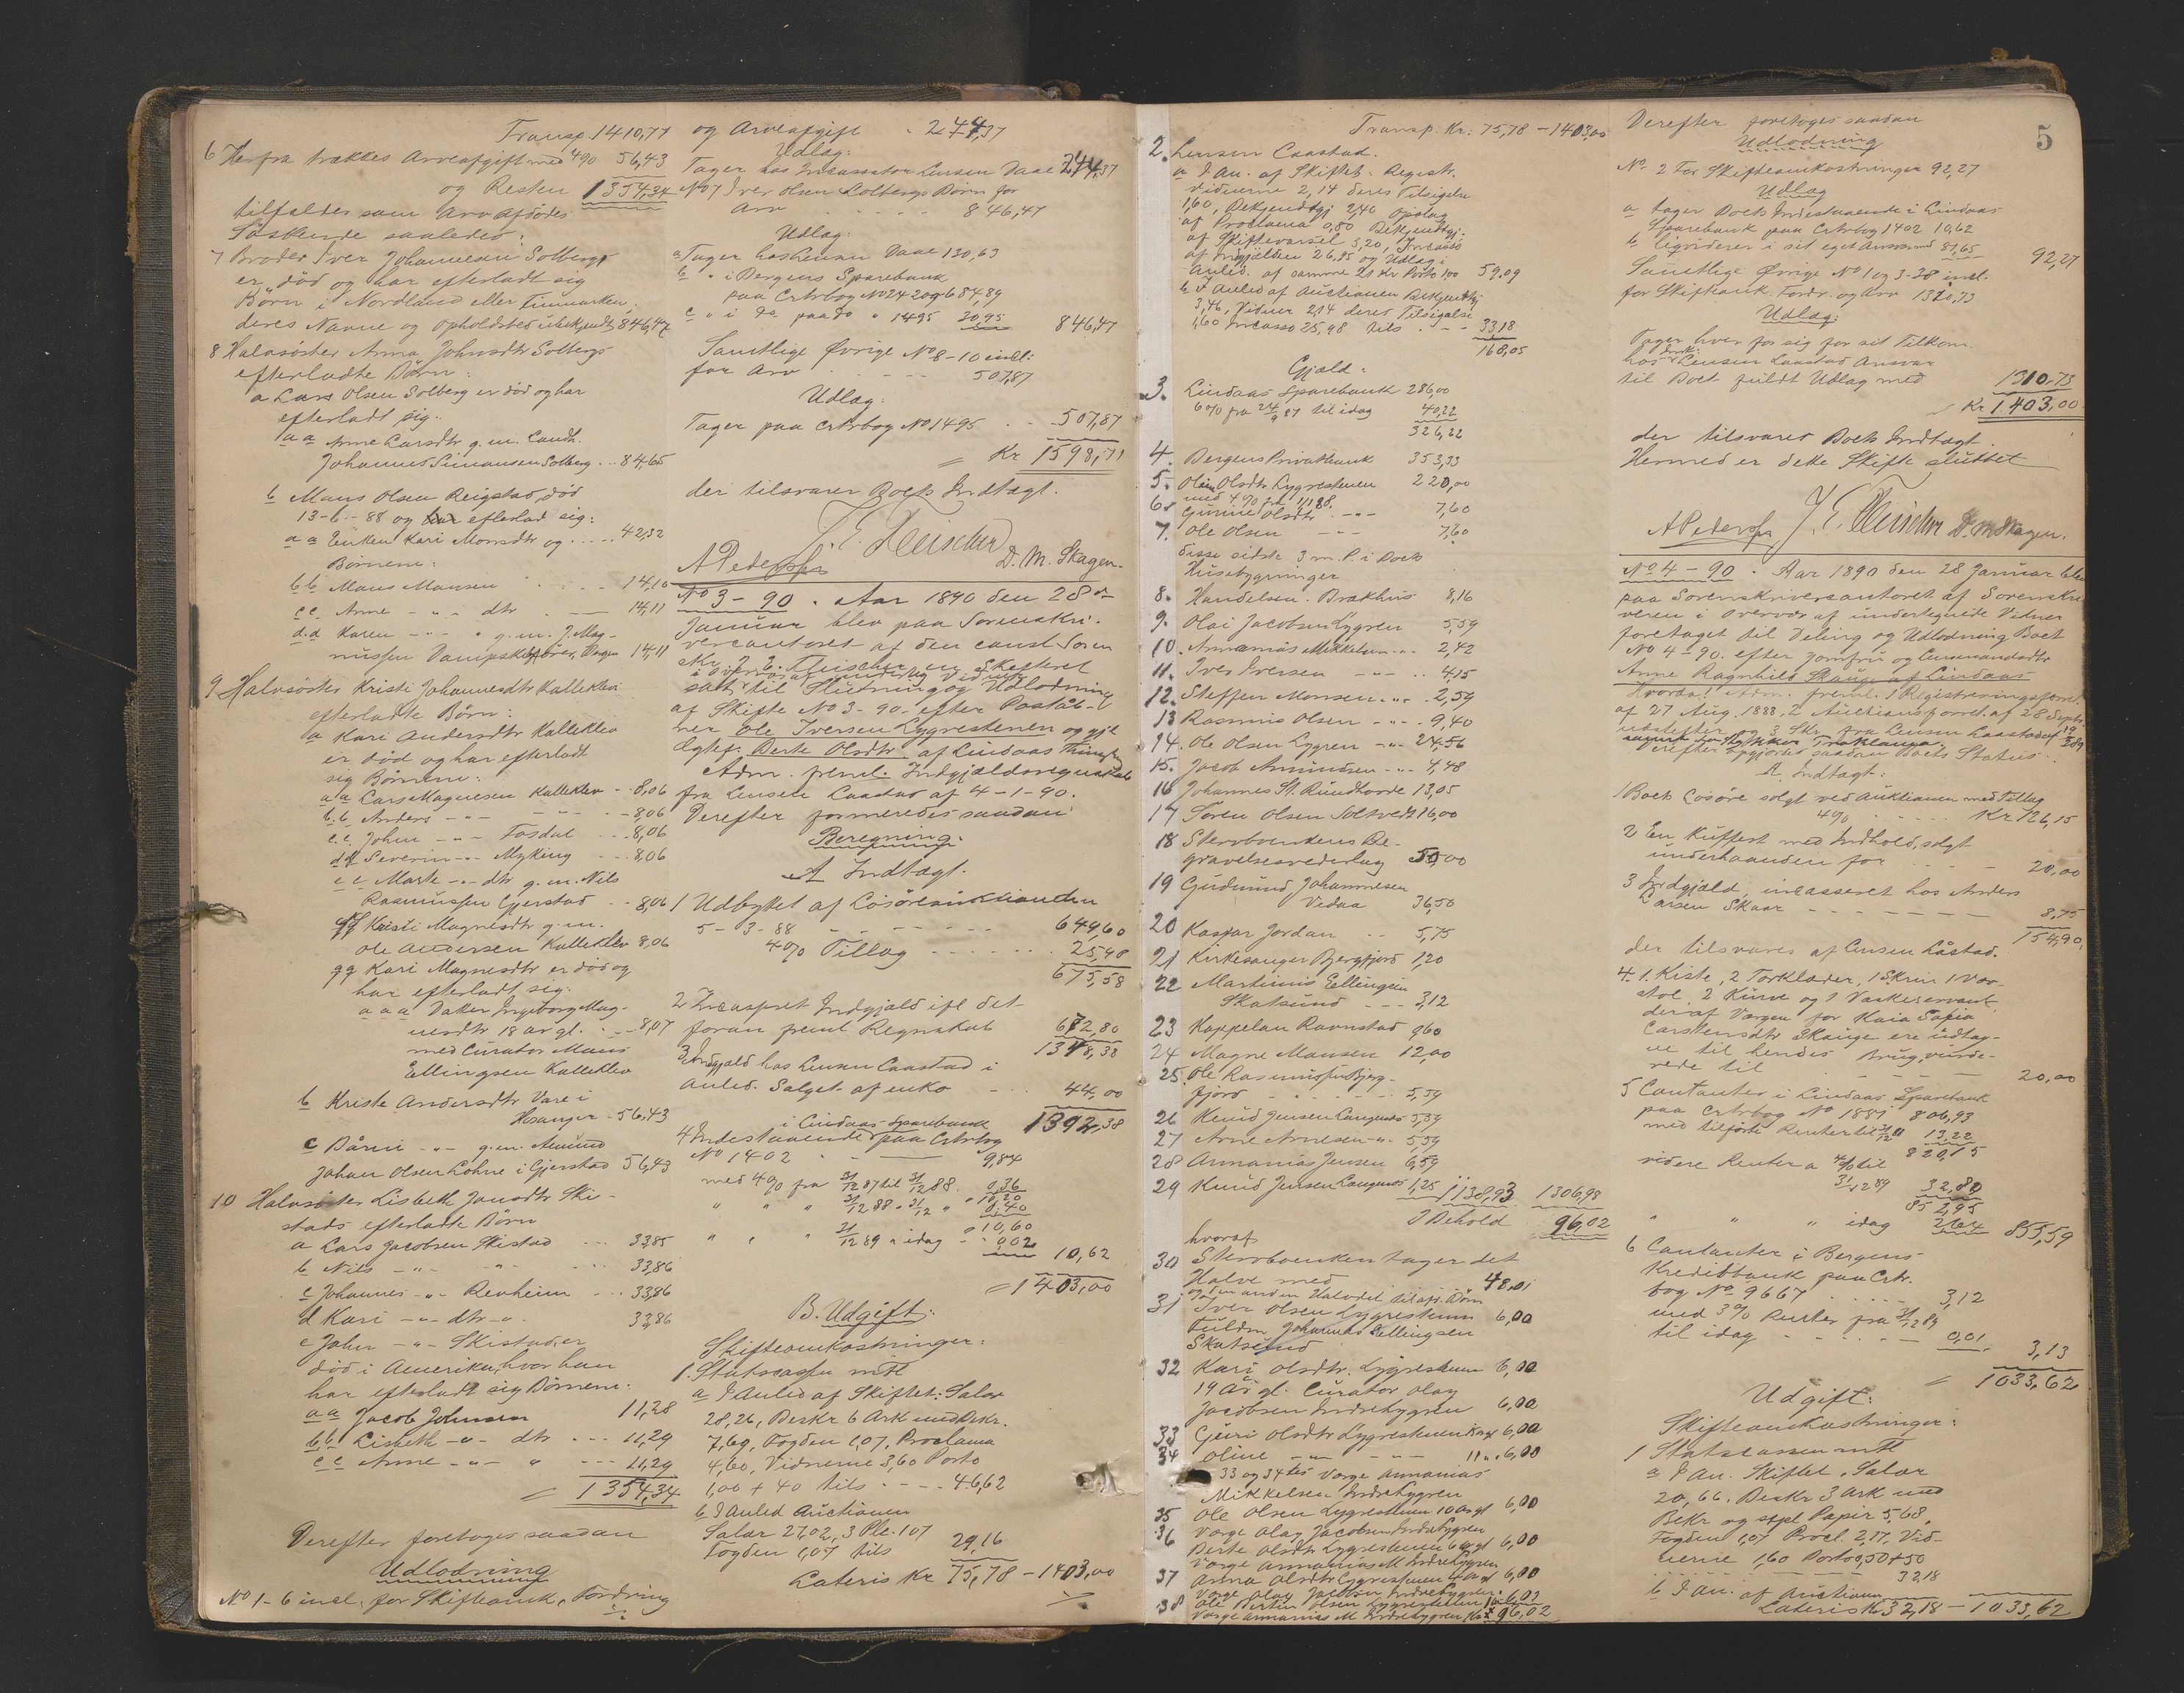 Transp. 1410,77
6 Herfra trækkes Arveafgift med 4% 56,43
og Resten 1354,34
tilfalder som Arv Afdødes
Søskende saaledes:
7 Broder Iver Johannesen Solbergs
er død og har efterladt sig
Børn i Nordland eller Finmarken,
deres Navne og Opholdsted ubekjendt 846,47
8 Halvsøster Anna Johnsdtr Solbergs
efterladte Børn:
a Lars Olsen Solberg er død og har
efterladt sig:
aa Anne Larsdtr g.m. Landh.
Johannes Simonsen Solberg .. 84,65
b Mons Olsen Reigstad, død
13-6-88 og efterlod sig:
aa Enken Kari Monsdtr og .... 42,32
Børnene:
bb Mons Monsen - - - 14,10
cc Anne -"- dtr - 14,11
dd Karen -"- " g.m. J. Mag-
nussen Dampskibsfører, Bergen 14,11
9 Halvsøster Kristi Johannesdtr Kalleklev
efterladte Børn:
a Kari Andersdtr Kalleklev
er død og har efterladt
sig Børnene:
aa Lars Magnesen Kalleklev - 8,06
bb Anders -"- -"- - 8,06
cc John -"- Fosdal ... 8,06
dd Severin -"- Myking ... 8,06
ee Marte -"- dtr g.m. Nils
Rasmussen Gjerstad .. 8,06
ff Kristi Magnesdtr g.m.
Ole Andersen Kalleklev 8,06
gg Kari Magnesdtr er død og
har efterladt sig:
aaa Datter Ingeborg Mag-
nesdtr 18 aar gl. .. 8,07
med Curator Mons
Ellingsen Kalleklev
b Kriste Andersdtr Vare i
Hosanger - 56,43
c Dårdi -"- g.m. Amund
Johan Olsen Lohne i Gjerstad 56,43
10 Halvsøster Lisbeth Jonsdtr Ski-
stads efterladte Børn
a Lars Jacobsen Skistad ... 33,85
b Nils -"- -"- ... 33,86
c Johannes -"- Revheim ... 33,86
d Kari -"- dtr -"- 33,86
e John -"- Skistad, er
død i Amerika, hvor han
har efterladt sig Børnene:
aa Jacob Johnsen 11,28
bb Lisbeth -"- dtr ... 11,29
cc Anne -"- " ... 11,29
= 1354,34
Derefter foretoges saadan
Udlodning
No 1-6 incl. for Skifteomk., Fordring
og Arveafgift . 244,37
Udlag:
Tager hos Incassator Lensm. Daae 244,37
No 7 Iver Olsen Solbergs Børn for
Arv ..... 846,47
Udlag:
a Tager hos Lensm. Daae 130,63
b " i Bergens Sparebank
paa Ctrbog No 2420 684,89
c " i do paa do " 1495 30,95 846,47
Samtlige Øvrige No 8-10 incl.
for Arv ..... 507,87
Udlag:
Tager paa Ctrbog No 1495 .. 507,87
= Kr 1598,71
der tilsvarer Boets Indtægt.
J. E. Fleischer
A Pedersen D. M. Skagen.
No 3-90. Aar 1890 den 28de
Januar blev paa Sorenskri-
vercontoret af den const. Soren
skr. J. E. Fleischer en Skifteret
i Overvær af undertegn. Vidner
sat til Slutning og Udlodning
af Skifte No 3-90 efter Postaab-
ner Ole Iversen Lygrestenen og gjl
Egtef. Berte Olsdtr af Lindaas Thinglag
Adm. freml. Indgjældsregnskab
fra Lensm. Laastad af 4-1-90.
Derefter formeredes saadan
Beregning.
A Indtægt.
1 Udbyttet af Løsøreauktionen
5-3-88 ..... 649,60
4% Tillæg ..... 25,98
675,58
2 Incasseret Indgjæld ifl. det
foran freml. Regnskab 672,80
1348,38
3 Indgjæld hos Lensm. Laastad i
Anled. Salget af enko - 44,00
1392,38
4 Indestaaende i Lindaas Sparebank paa Ctrbog
No 1402 - 9,84
med 4% fra 31/12 87 til 31/12 88. 0,36
10,20
" " " 31/12 88 " 31/12 " 0,40
10,60
" " " 31/12 89 " idag - 0,02 10,62
= 1403,00
B. Udgift:
Skifteomkostninger:
1. Statscassen mtl
a I Anled af Skiftet: Salær
28,26, Beskr 6 Ark med Bekr.
7,69, Fogden 1,07, Proclama
4,60, Vidnerne 3,60 Porto
1,00 + 40 tils .... 46,62
b I Anled Auctionen
Salær 27,02, 3 Ple. 1,07
Fogden 1,07 tils 29,16
Lateris Kr 75,78 - 1403,00
5
Transp. Kr: 75,78 - 1403,00
2. Lensm Laastad.
a I An. af Skiftet. Registr.
Vidnerne 2,14 deres Tilsigelse
1,60, Bekjendtgj 2,40 Opslag
af Proclama 0,80 Bekjendtgj.
af Skiftevarsel 3,20, Incasso
af Indgjælden 26,95 og Udlæg i
Anled. af samme 21 Kr Porto 1,00 59,09
b I Anled af Auctionen Bekjendtgj
3,46, Vidner 2,14 deres Tilsigelse
1,60 Incasso 25,98 tils ... 33,18
168,05
Gjæld:
3. Lindaas Sparebank 286,00
6% fra 24/9 87 til idag 40,22
326,22
4. Bergens Privatbank 353,33
5. Oline Olsdtr Lygrestenen 220,00
med 4% fra 1/1 88.
6. Gurine Olsdtr -"- 7,60
7. Ole Olsen -"- 7,60
disse sidste 3 m. P. i Boets
Husebygninger
8. Handelsm. Brækhus 8,16
9. Olai Jacobsen Lygren 5,59
10. Annanias Mikkelsen -"- 2,42
11. Iver Iversen -"- .. 4,15
12. Steffen Monsen -"- 2,59
13 Rasmus Olsen -"- 9,40
14. Ole Olsen Lygren -"- 24,56
15. Jacob Amundsen -"- 4,48
16 Johannes St. Rundhovde 13,05
17 Søren Olsen Soltvedt 16,00
18 Stervboenkens Be-
gravelsesvederlag 50,00
19 Gudmund Johannesen
Vidaa 36,50
20 Kaspar Jordan .. 5,75
21 Kirkesanger Bjergfjord 1,20
22 Martinus Ellingsen
Skatsund -- 3,12
23 Kappelan Ravnstad 9,60
24 Magne Monsen 12,00
25. Ole Rasmussen Bjerg-
fjord - - 5,59
26 Knud Jensen Langenes 5,59
27 Arne Arnesen -"- 5,59
28 Annanias Jensen 6,59
29 Knud Jensen Langenes 1,25 1138,93 1306,98
I Behold 96,02
hvoraf
30 Stervboenken tager det
Halve med 48,01
den anden Halvdel til afd. Børn
31 Iver Olsen Lygrestenen 6,00
Fuldm. Johannes Ellingsen
Skatsund
32 Kari Olsdtr. Lygrestenen 6,00
19 Aar gl. Curator Olay
Jacobsen Indrelygren 6,00
33 Guri Olsdtr Lygrestenen 6,00
34 Oline -"- -"- 11 " 6,00
33 og 34tes Værge Annanias
Mikkelsen Indrelygren
35 Ole Olsen Lygrestenen 10 Aar gl 6,00
36 Værge Olay Jacobsen Indrelygren
Berte Olsdtr Lygrestenen 6 Aar gl 6,00
Værge Annanias M Indrelygren
37 Anna Olsdtr Lygrestenen 4 Aar gl 6,00
Værge Olay Jacobsen Indrelygren
38 Ole Bertin Olsen Lygrestenen 6,02
Værge Annanias M Indrelygren Kr 96,02
Derefter foretoges saadan
Udlodning
No. 2 For Skifteomkostninger 92,27
Udlæg
a tager Boets Indestaaende i Lindaas
Sparebank paa Ctrbog 1402 10,62
b liqviderer i sit eget Ansvar med 81,65 92,27
Samtlige Øvrige No 1 og 3-38 incl.
for Skifteomk. Fordr. og Arv 1310,73
Udlæg:
Tager hver for sig for sit Tilkom.
hos Lensm Laastad Ansvar
til Boet fuldt Udlæg med 1310,73
Kr 1403,00
der tilsvarer Boets Indtægt.
Hermed er dette Skifte sluttet
A Pedersen J. E. Fleischer D. M. Skagen.
No 4-90. Aar 1890 den 28 Januar blev
paa Sorenskrivercontoret af Sorenskri
veren i Overvær af undertegnede Vidner
foretaget til Deling og Udlodning Boet
No 4-90 efter Jomfru og Lensmandsdtr
Anne Ragnhild Skauge af Lindaas
Hvorda: Adm. freml. 1 Registreringsforret.
af 27 Aug. 1888, 2 Auctionsforret. af 28 Septr.
og 3 Skr. fra Lensm Laastad af
Proklama
erefter opgjordes saadan Boets Status:
A. Indtægt:
1 Boets Løsøre solgt ved Auktionen med Tillæg
4% Kr 126,15
2 En Kuffert med Indhold, solgt
underhaanden for - - - 20,00
3 Indgjæld, incasseret hos Anders
Larsen Skaar - - - - 8,75
154,90
der tilsvares af Lensm Låstad.
4. 1 Kiste, 2 Torklæder, 1 Skrin 1 Vov-
stol, 2 Kurve og 1 Vaskeservant
deraf Værgen for Kaia Sofia
Carstensdtr Skauge ere udtag-
ne til hendes Brug, vurde-
rede til - - - - 20,00
5 Contanter i Lindaas Sparebank
paa Ctrbog No 1881 806,93
med tilførte Renter til 31/12 88 13,22
820,15
videre Renter a 4% til
31/12 89 32,80
852,95
" " " idag 2,64 855,59
6 Contanter i Bergens
Kreditbank paa Ctr.
bog No 9667 .... 3,12
med 3% Renter fra 31/12 89
til idag .... 0,01 3,13
= 1033,62
Udgift:
Skifteomkostninger:
1 Statscassen mtl
a I An. Skiftet. Salær
20,66. Beskr 3 Ark med
Bekr og stpl Papir 5,68,
Fogden 1,07 Procl. 2,17, Vid-
nerne 1,60 Porto 0,50+50
32,18
b I An. af Auction
Lateris Kr 32,18 - 1033,62